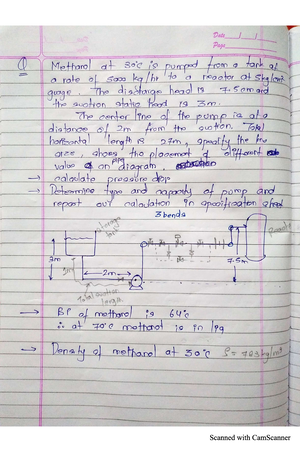 Date / /
Page
Q Methanol at 30°c is pumped from a tank at
a rate of 5000 kg/hr to a reactor at 5kg/cm²
gauge. The discharge head is 7.5cm and
the suction static head is 3m.
The center line of the pump is at a
distance of 2m from the suction. Total
horizontal length is 27m, specify the
size, shows the placement of different
valve on diagram
→ calculate pressure drop
→ Determine type and capacity of pump and
report out calculation in specification sheet
3 bends
storage
tank
Reactor
3m
2m
7.5m
Total suction
length
→ BP of methanol is 64°c
∴ at 70°c methanol is in liq
→ Density of methanol at 30°c
Scanned with CamScanner